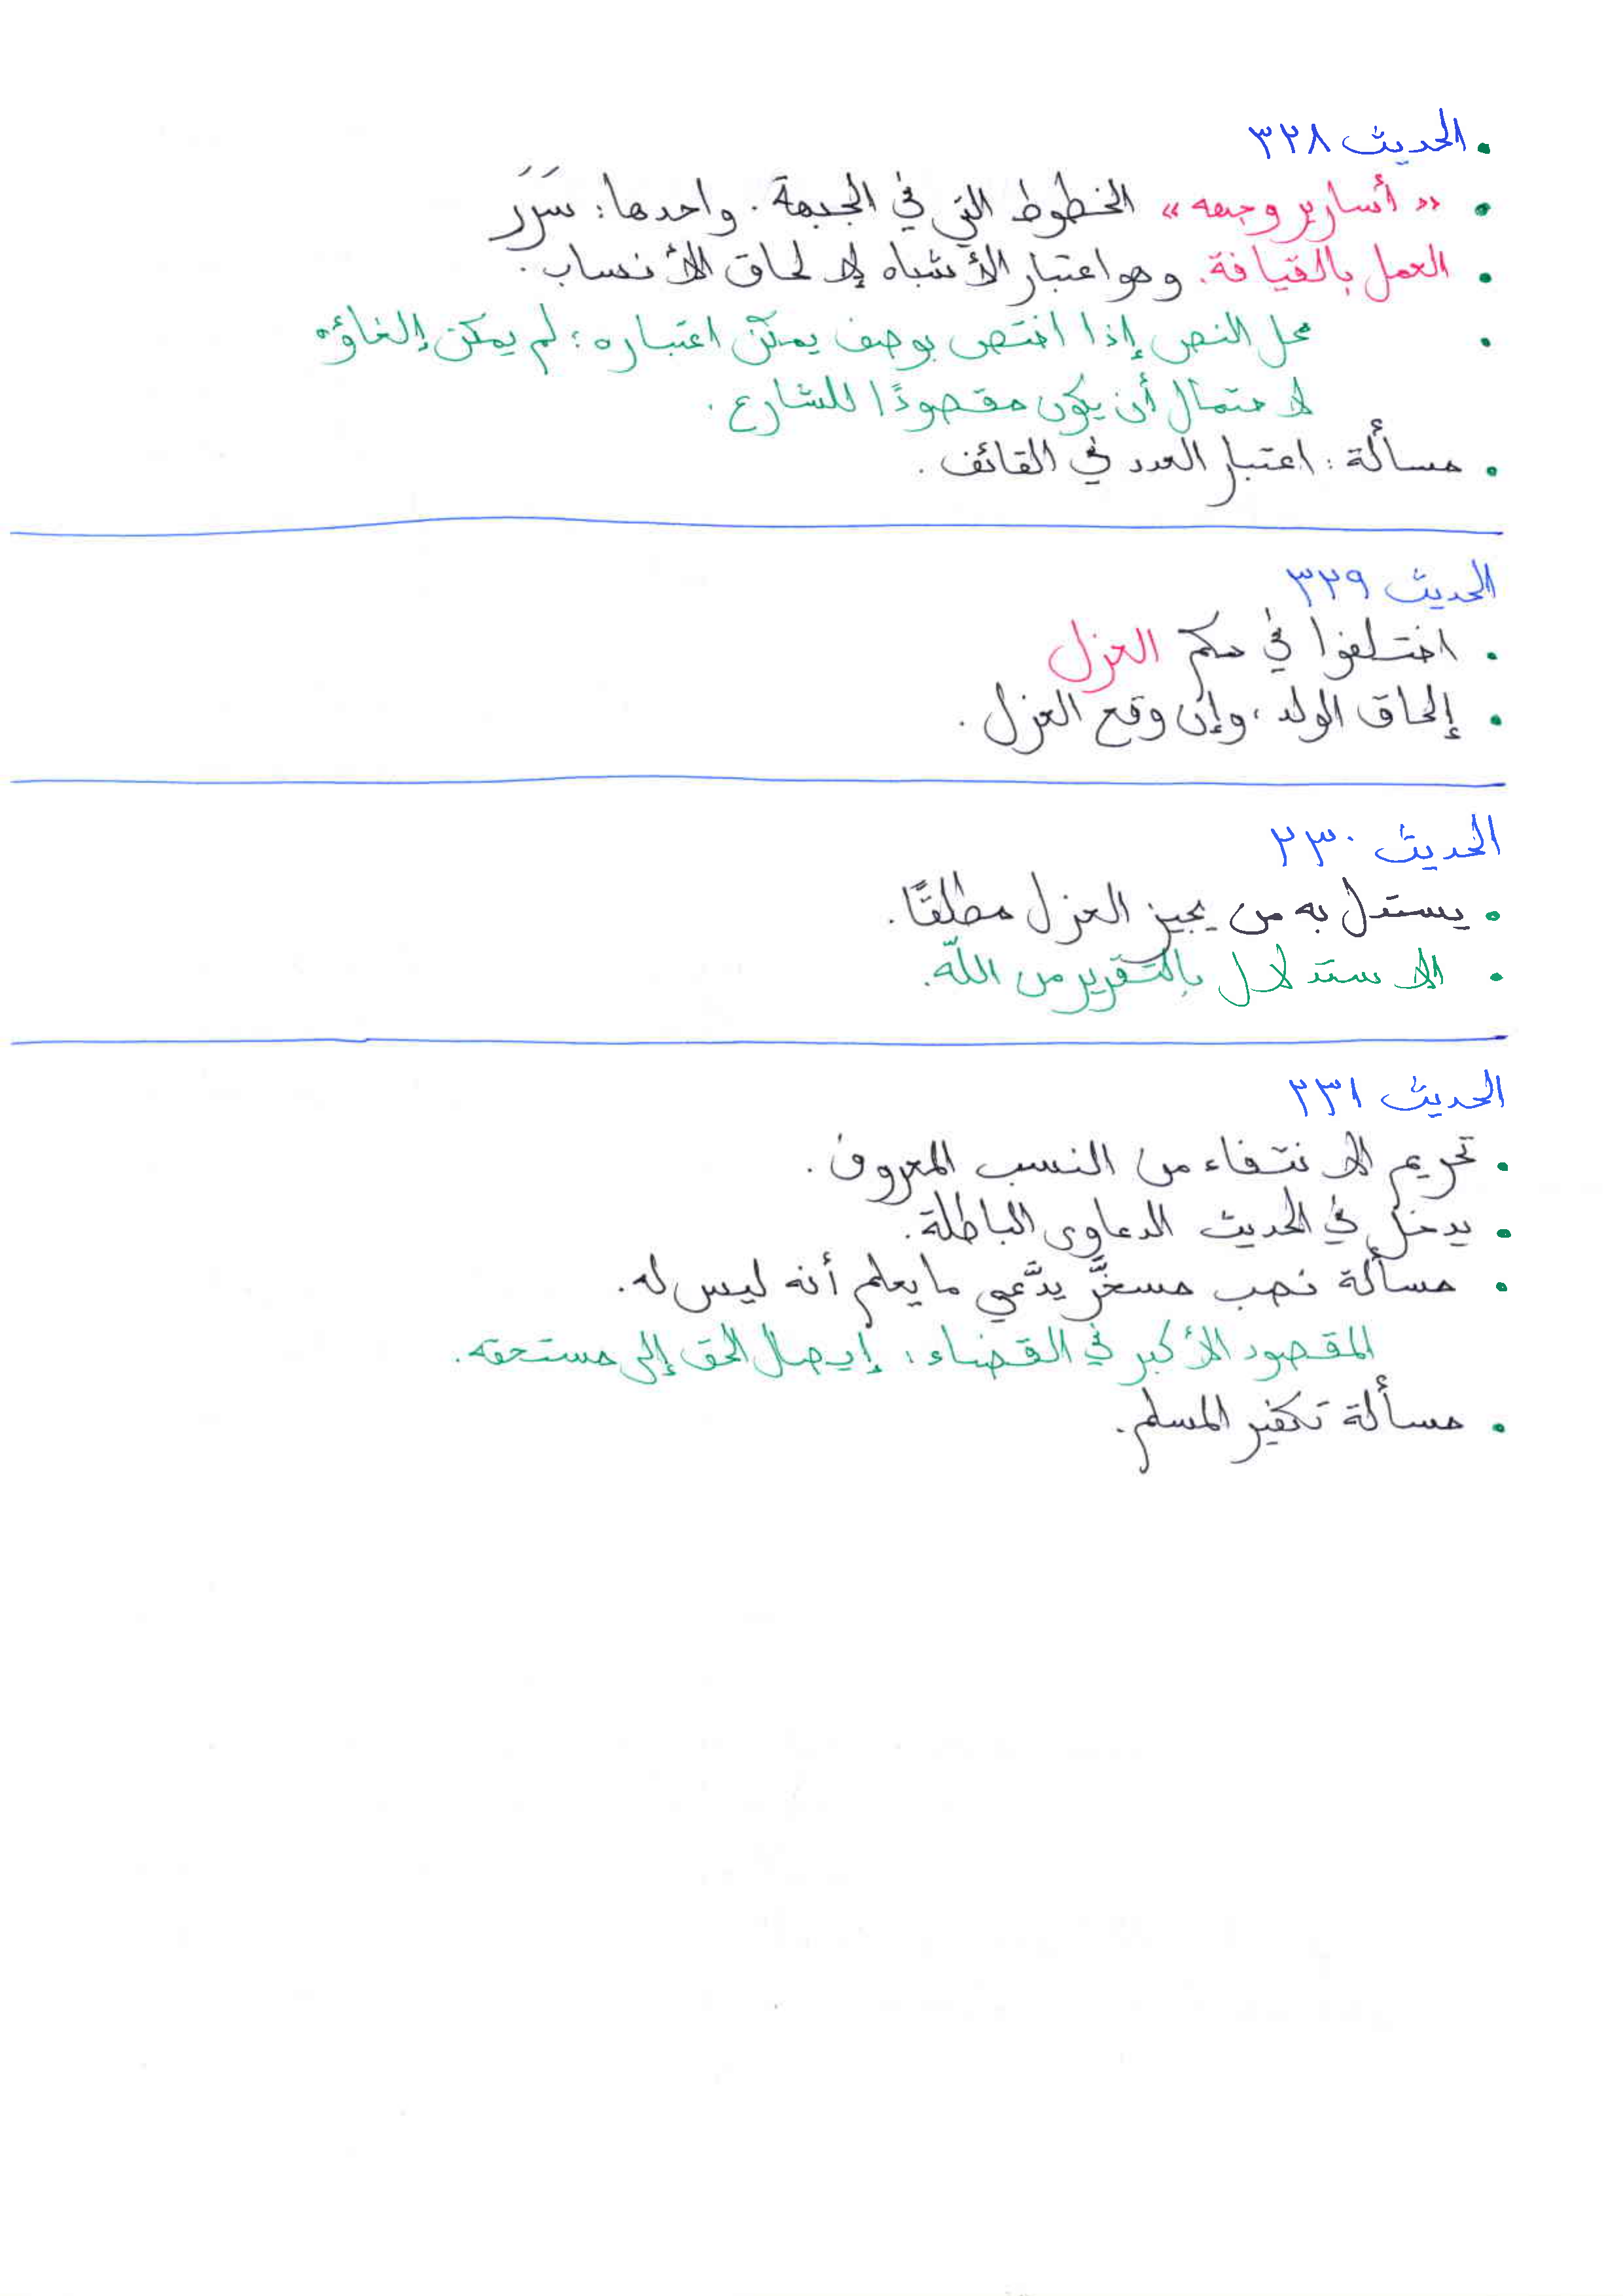 • الحديث ٣٢٨
• «أسارير وجهه» الخطوط التي في الجبهة. واحدها: سَرَر
• العمل بالقيافة. وهو اعتبار الأشباه لإلحاق الأنساب.
• محل النص إذا اختص بوصف يمكن اعتباره: لم يمكن إلغاؤه
لاحتمال أن يكون مقصودًا للشارع.
• مسألة: اعتبار العدد في القائف.
الحديث ٣٢٩
• اختلفوا في حكم العزل
• إلحاق الولد، وإن وقع العزل.
الحديث ٢٣٠
• يستدل به من يجيز العزل مطلقًا.
• الاستدلال بالتقرير من اللّه.
الحديث ٢٣١
• تحريم الانتفاء من النسب المعروف.
• يدخل في الحديث الدعاوى الباطلة.
• مسألة نصب مسخَّر يدَّعي ما يعلم أنه ليس له.
المقصود الأكبر في القضاء: إيصال الحق إلى مستحقه.
• مسألة تكفير المسلم.